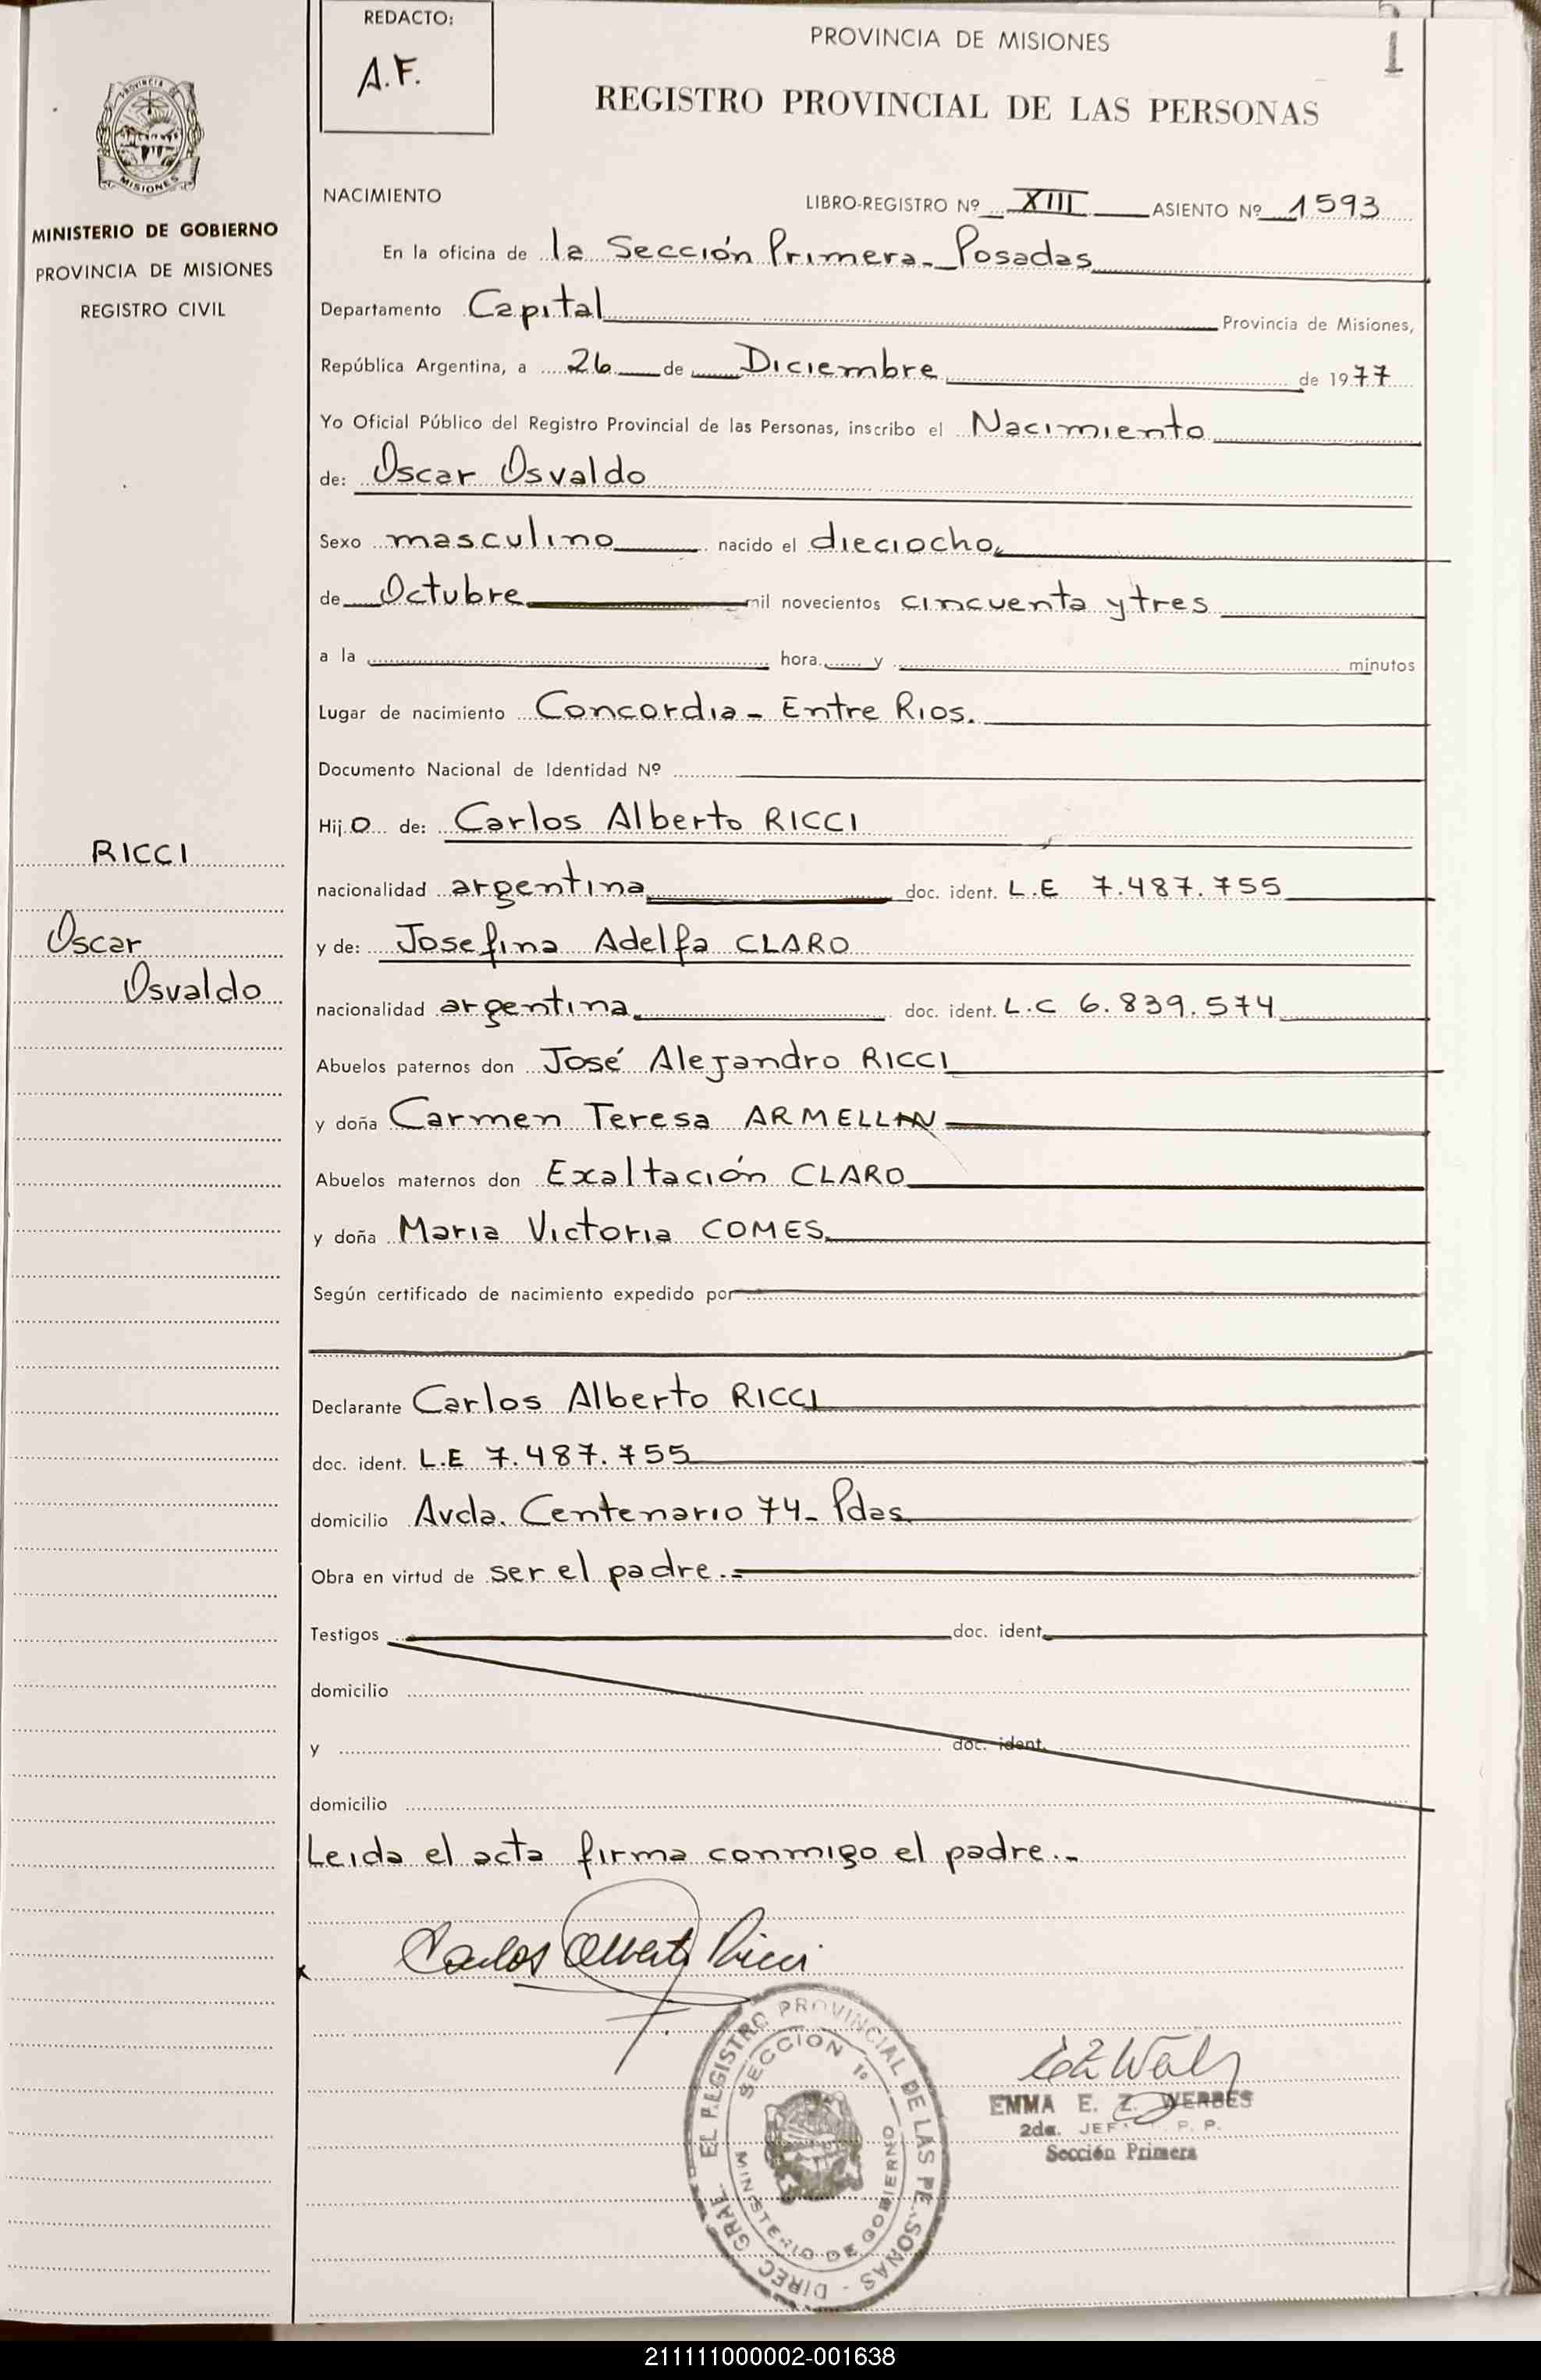 REDACTO:
A.F.
PROVINCIA DE MISIONES
1
REGISTRO PROVINCIAL DE LAS PERSONAS
PROVINCIA DE
MISIONES
MINISTERIO DE GOBIERNO
PROVINCIA DE MISIONES
REGISTRO CIVIL
NACIMIENTO
LIBRO-REGISTRO Nº XIII ASIENTO Nº 1593
En la oficina de la Sección Primera - Posadas
Departamento Capital Provincia de Misiones,
República Argentina, a 26 de Diciembre de 1977
Yo Oficial Público del Registro Provincial de las Personas, inscribo el Nacimiento
de: Oscar Osvaldo
Sexo masculino nacido el dieciocho
de Octubre mil novecientos cincuenta y tres
a la hora y minutos
Lugar de nacimiento Concordia - Entre Rios.
Documento Nacional de Identidad Nº
Hijo de: Carlos Alberto RICCI
RICCI
nacionalidad argentina doc. ident. L.E 7.487.755
Oscar
y de: Josefina Adelfa CLARO
Osvaldo
nacionalidad argentina doc. ident. L.C 6.839.574
Abuelos paternos don José Alejandro RICCI
y doña Carmen Teresa ARMELLIN
Abuelos maternos don Exaltación CLARO
y doña Maria Victoria COMES
Según certificado de nacimiento expedido por
Declarante Carlos Alberto RICCI
doc. ident. L.E 7.487.755
domicilio Avda. Centenario 74 - Pdas.
Obra en virtud de ser el padre.=
Testigos doc. ident.
domicilio
y doc. ident.
domicilio
Leida el acta firma conmigo el padre.-
Carlos Alberto Ricci
DIREC. GRAL. EL REGISTRO PROVINCIAL DE LAS PERSONAS -
SECCION 1º
MINISTERIO DE GOBIERNO
EMMA E. Z. WERBES
2da. JEF P. P.
Sección Primera
211111000002-001638